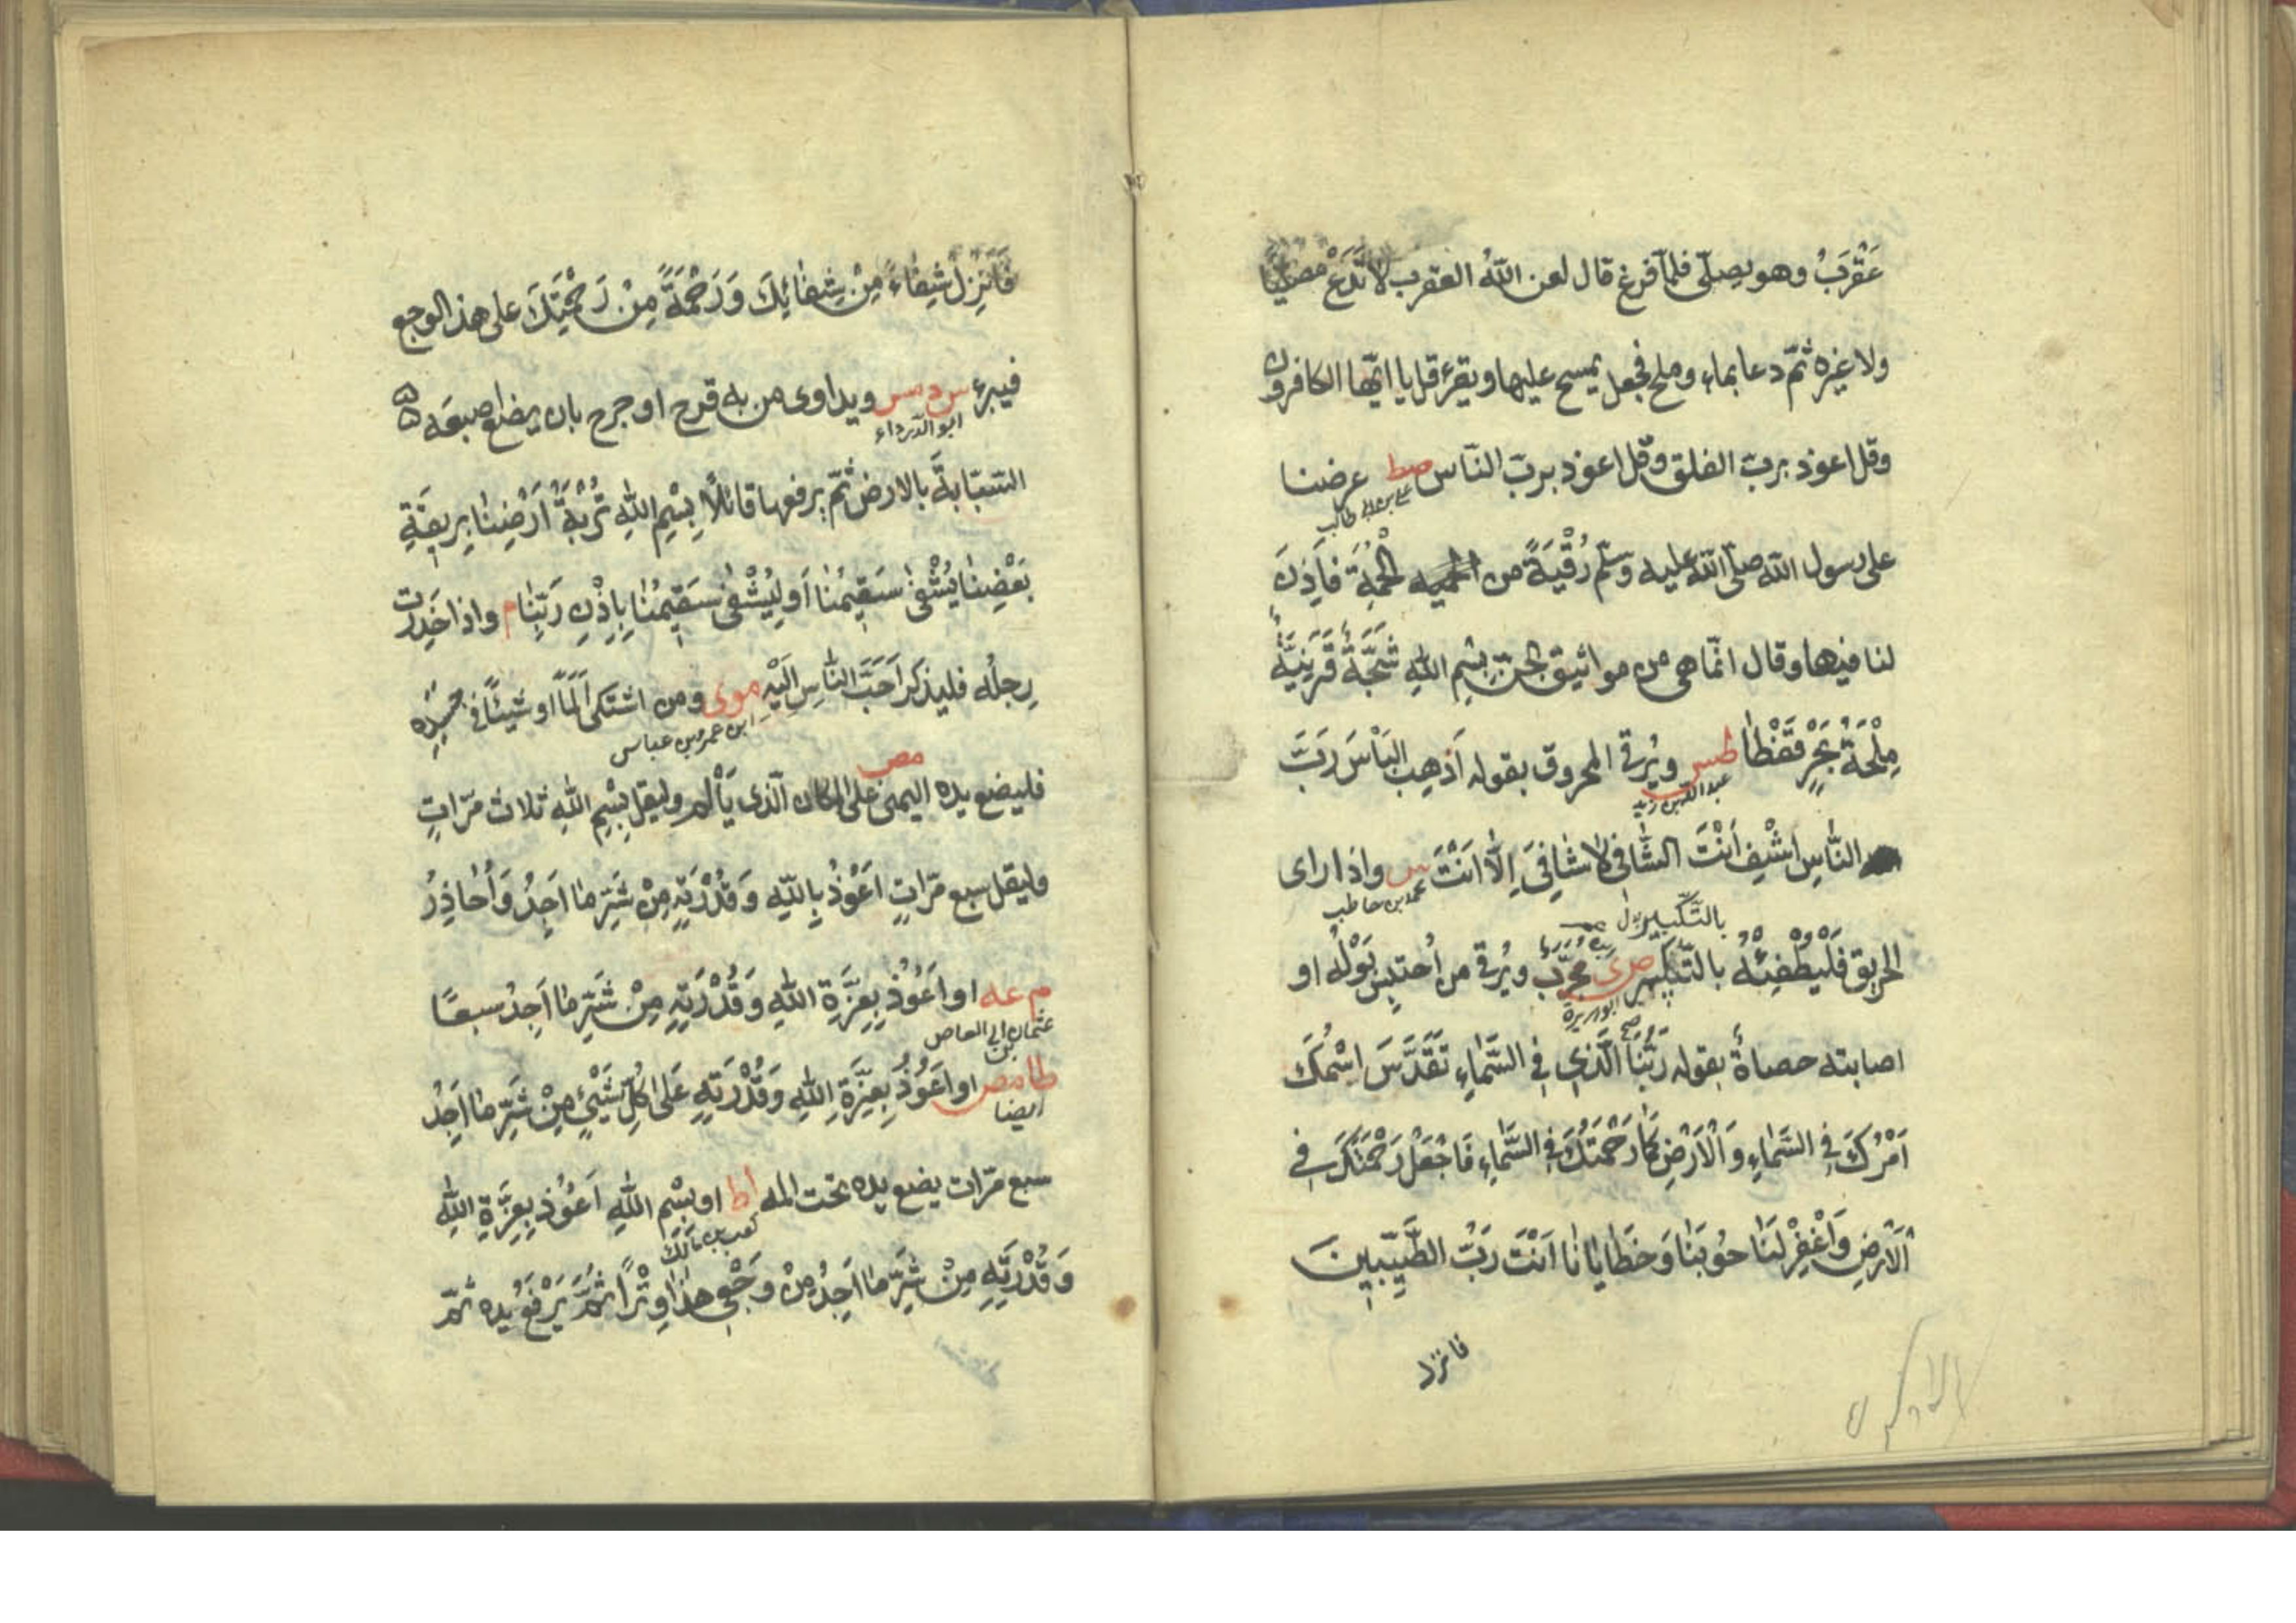 عَقْرَبُ وهو يصلّى فلمّا فرغ قال لعن اللهُ العقرب لا تَدَعُ مصلّيًا
ولا غيره ثمّ دعا بماء وملح فجعل يمسح عليها ويقرء قل يا ايّها الكافرون
وقل اعوذ بربّ الفلق وقل اعوذ بربّ النّاس صط عرضنا
علي بن ابي طالب
على رسول الله صلّى الله عليه وسلّم رُقْيَةً من الحُمَةِ فاَذِنَ
لنا فيها وقال انّما هى من مواثيق الجنّ بِسْمِ اللهِ شَجَّةٌ قَرَنِيَّةٌ
مِلْحَةُ بَحْرٍ قَفْطَا طس ويُرقى المحروق بقوله اَذهِبِ البَاْسَ رَبَّ
عبدالله بن زيد
النَّاسِ اِشْفِ اَنْتَ الشَّافِى لا شَافِىَ اِلَّا اَنْتَ س واذا راى
محمد بن حاطب
بالتّكبير
الحريق فَلْيُطْفِئْهُ بالتّكبير ص ى مُجَرَّبٌ ويُرقى من اُحتبِس بَوْلُه او
ابو هريرة
اصابته حصاةٌ بقوله رَبُّنَا الَّذِى فِى السَّمَاءِ تَقَدَّسَ اسْمُكَ
اَمْرُكَ فِى السَّمَاءِ وَالْاَرْضِ كَمَا رَحْمَتُكَ فِى السَّمَاءِ فَاجْعَلْ رَحْمَتَكَ فِى
الْاَرْضِ وَاغْفِرْ لَنَا حُوبَنَا وَخَطَايَانَا اَنْتَ رَبُّ الطَّيِّبِينَ
فانزل
فَاَنْزِلْ شِفَاءً مِنْ شِفَائِكَ وَرَحْمَةً مِنْ رَحْمَتِكَ على هذا الوجع
فيبرء س د مس ويداوى من به قرح او جرح بان يضع اصبعَه
ابو الدّرداء
السّبّابةَ بالارض ثمّ يرفعها قائلاً بِسْمِ اللهِ تُرْبَةُ اَرْضِنَا بِرِيقَةِ
بَعْضِنَا يُشْفٰى سَقِيمُنَا اَو لِيُشْفٰى سَقِيمُنَا بِاِذْنِ رَبِّنَا م واذا خَدِرَت
رِجلُه فليذكر اَحَبَّ النَّاسِ اِلَيْهِ موى ومن اشتكى اَلَمًا او شيئًا فى جسدِه
ابن عمر وبن عباس
مص
فليضع يده اليمنى على المكان الّذى يَأْلَم وليقل بِسْمِ اللهِ ثلاث مرّاتٍ
وليقل سبع مرّاتٍ اَعُوْذُ بِاللهِ وَقُدْرَتِهِ مِنْ شَرِّ مَا اَجِدُ وَاُحَاذِرُ
م عه او اَعُوْذُ بِعِزَّةِ اللهِ وَقُدْرَتِهِ مِنْ شَرِّ مَا اَجِدُ سبعًا
عثمان بن ابي العاص
طا مص او اَعُوْذُ بِعِزَّةِ اللهِ وَقُدْرَتِهِ عَلٰى كُلِّ شَيْئٍ مِنْ شَرِّ مَا اَجِدُ
ايضا
سبع مرّات يضع يده تحت المه اط او بِسْمِ اللهِ اَعُوْذُ بِعِزَّةِ اللهِ
كعب بن مالك
وَقُدْرَتِهِ مِنْ شَرِّ مَا اَجِدُ مِنْ وَجَعِى هٰذَا وِتْرًا ثُمَّ يَرْفَعُ يده ثمّ